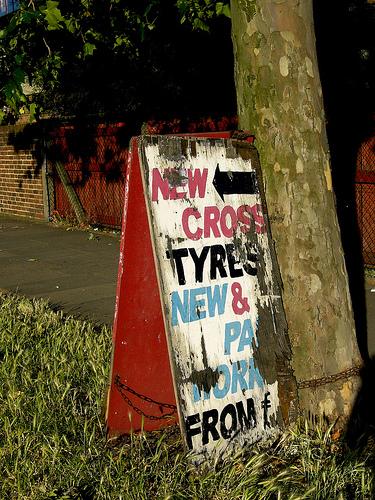 NEW
CROSS
TYRES
NEW &
PA
WORK
FROM £